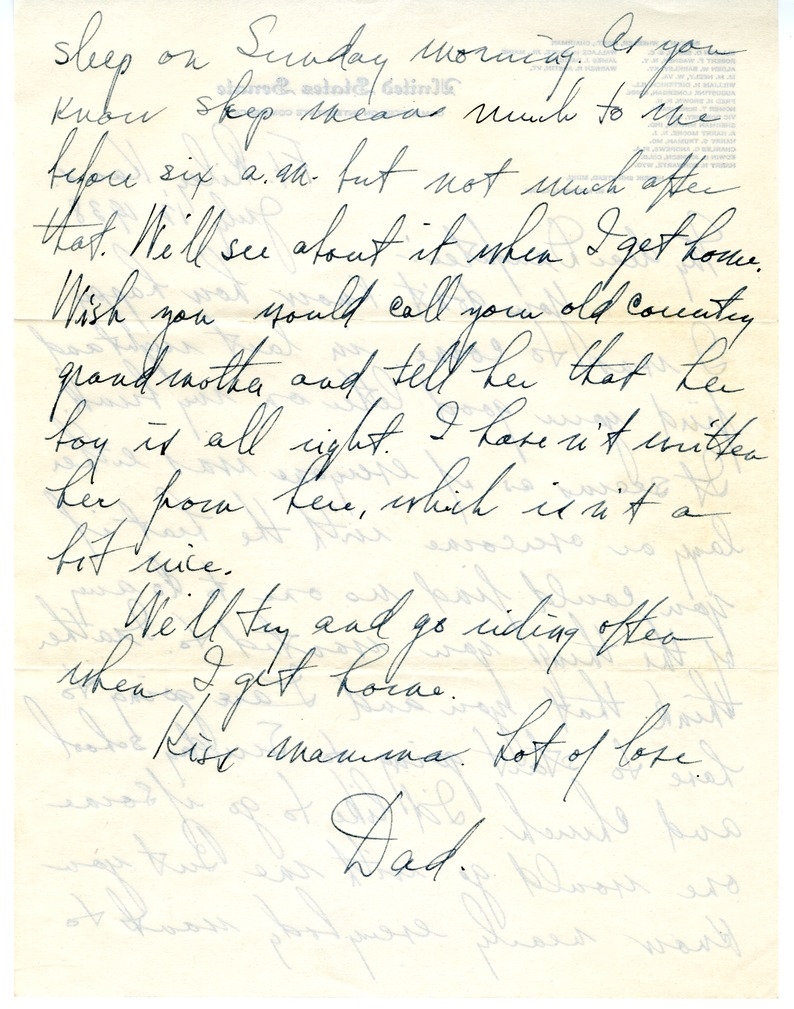 sleep on Sunday morning. As you
know sleep means much to me
before six a.m. but not much after
that. We'll see about it when I get home.
Wish you would call your old country
grandmother and tell her that her
boy is all right. I have n't written
her from here, which is n't a
bit nice.
We'll try and go riding often
when I get home.
Kiss mamma. Lot of love
Dad.